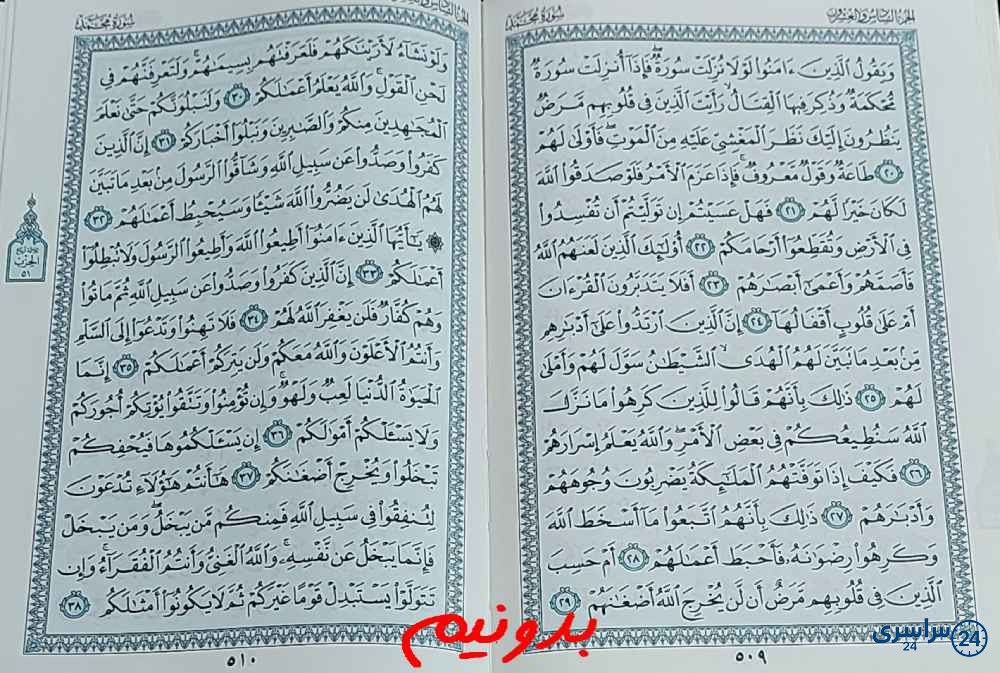 الجزء السادس والعشرون
سورة محمد
وَيَقُولُ الَّذِينَ ءَامَنُوا لَوْلَا نُزِّلَتْ سُورَةٌ فَإِذَا أُنزِلَتْ سُورَةٌ
مُّحْكَمَةٌ وَذُكِرَ فِيهَا الْقِتَالُ رَأَيْتَ الَّذِينَ فِي قُلُوبِهِم مَّرَضٌ
يَنظُرُونَ إِلَيْكَ نَظَرَ الْمَغْشِيِّ عَلَيْهِ مِنَ الْمَوْتِ فَأَوْلَىٰ لَهُمْ
٢٠ طَاعَةٌ وَقَوْلٌ مَّعْرُوفٌ فَإِذَا عَزَمَ الْأَمْرُ فَلَوْ صَدَقُوا اللَّهَ
لَكَانَ خَيْرًا لَّهُمْ ٢١ فَهَلْ عَسَيْتُمْ إِن تَوَلَّيْتُمْ أَن تُفْسِدُوا
فِي الْأَرْضِ وَتُقَطِّعُوا أَرْحَامَكُمْ ٢٢ أُولَٰئِكَ الَّذِينَ لَعَنَهُمُ اللَّهُ
فَأَصَمَّهُمْ وَأَعْمَىٰ أَبْصَارَهُمْ ٢٣ أَفَلَا يَتَدَبَّرُونَ الْقُرْءَانَ
أَمْ عَلَىٰ قُلُوبٍ أَقْفَالُهَا ٢٤ إِنَّ الَّذِينَ ارْتَدُّوا عَلَىٰ أَدْبَارِهِم
مِّن بَعْدِ مَا تَبَيَّنَ لَهُمُ الْهُدَى الشَّيْطَانُ سَوَّلَ لَهُمْ وَأَمْلَىٰ
لَهُمْ ٢٥ ذَٰلِكَ بِأَنَّهُمْ قَالُوا لِلَّذِينَ كَرِهُوا مَا نَزَّلَ
اللَّهُ سَنُطِيعُكُمْ فِي بَعْضِ الْأَمْرِ وَاللَّهُ يَعْلَمُ إِسْرَارَهُمْ
٢٦ فَكَيْفَ إِذَا تَوَفَّتْهُمُ الْمَلَائِكَةُ يَضْرِبُونَ وُجُوهَهُمْ
وَأَدْبَارَهُمْ ٢٧ ذَٰلِكَ بِأَنَّهُمُ اتَّبَعُوا مَا أَسْخَطَ اللَّهَ
وَكَرِهُوا رِضْوَانَهُ فَأَحْبَطَ أَعْمَالَهُمْ ٢٨ أَمْ حَسِبَ
الَّذِينَ فِي قُلُوبِهِم مَّرَضٌ أَن لَّن يُخْرِجَ اللَّهُ أَضْغَانَهُمْ ٢٩
٥٠٩
الجزء السادس والعشرون
سورة محمد
وَلَوْ نَشَاءُ لَأَرَيْنَاكَهُمْ فَلَعَرَفْتَهُم بِسِيمَاهُمْ وَلَتَعْرِفَنَّهُمْ فِي
لَحْنِ الْقَوْلِ وَاللَّهُ يَعْلَمُ أَعْمَالَكُمْ ٣٠ وَلَنَبْلُوَنَّكُمْ حَتَّىٰ نَعْلَمَ
الْمُجَاهِدِينَ مِنكُمْ وَالصَّابِرِينَ وَنَبْلُوَا أَخْبَارَكُمْ ٣١ إِنَّ الَّذِينَ
كَفَرُوا وَصَدُّوا عَن سَبِيلِ اللَّهِ وَشَاقُّوا الرَّسُولَ مِن بَعْدِ مَا تَبَيَّنَ
لَهُمُ الْهُدَىٰ لَن يَضُرُّوا اللَّهَ شَيْئًا وَسَيُحْبِطُ أَعْمَالَهُمْ ٣٢
۞ يَا أَيُّهَا الَّذِينَ ءَامَنُوا أَطِيعُوا اللَّهَ وَأَطِيعُوا الرَّسُولَ وَلَا تُبْطِلُوا
أَعْمَالَكُمْ ٣٣ إِنَّ الَّذِينَ كَفَرُوا وَصَدُّوا عَن سَبِيلِ اللَّهِ ثُمَّ مَاتُوا
وَهُمْ كُفَّارٌ فَلَن يَغْفِرَ اللَّهُ لَهُمْ ٣٤ فَلَا تَهِنُوا وَتَدْعُوا إِلَى السَّلْمِ
وَأَنتُمُ الْأَعْلَوْنَ وَاللَّهُ مَعَكُمْ وَلَن يَتِرَكُمْ أَعْمَالَكُمْ ٣٥ إِنَّمَا
الْحَيَوٰةُ الدُّنْيَا لَعِبٌ وَلَهْوٌ وَإِن تُؤْمِنُوا وَتَتَّقُوا يُؤْتِكُمْ أُجُورَكُمْ
وَلَا يَسْأَلْكُمْ أَمْوَالَكُمْ ٣٦ إِن يَسْأَلْكُمُوهَا فَيُحْفِكُمْ
تَبْخَلُوا وَيُخْرِجْ أَضْغَانَكُمْ ٣٧ هَا أَنتُمْ هَٰؤُلَاءِ تُدْعَوْنَ
لِتُنفِقُوا فِي سَبِيلِ اللَّهِ فَمِنكُم مَّن يَبْخَلُ وَمَن يَبْخَلْ
فَإِنَّمَا يَبْخَلُ عَن نَّفْسِهِ وَاللَّهُ الْغَنِيُّ وَأَنتُمُ الْفُقَرَاءُ وَإِن
تَتَوَلَّوْا يَسْتَبْدِلْ قَوْمًا غَيْرَكُمْ ثُمَّ لَا يَكُونُوا أَمْثَالَكُم ٣٨
٥١٠
الحزب
٥١
بدونیم
سراسری 24
24